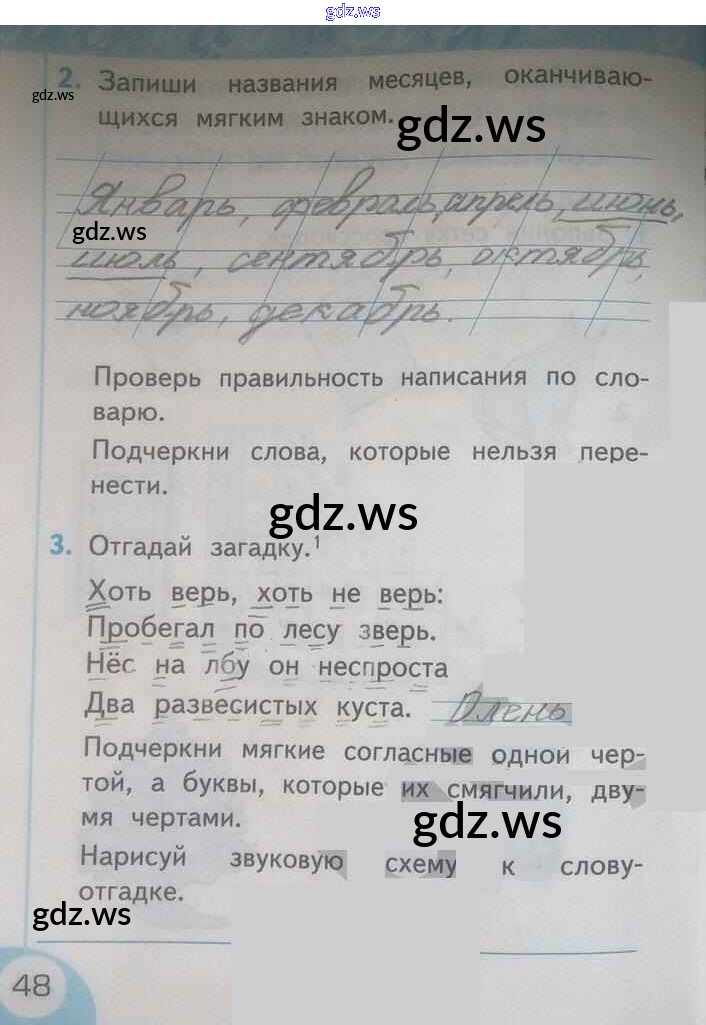 gdz.ws
2. Запиши названия месяцев, оканчиваю-
gdz.ws
щихся мягким знаком.
gdz.ws
Январь, февраль, апрель, июнь,
gdz.ws
июль, сентябрь, октябрь,
ноябрь, декабрь.
Проверь правильность написания по сло-
варю.
Подчеркни слова, которые нельзя пере-
нести.
gdz.ws
3. Отгадай загадку.¹
Хоть верь, хоть не верь:
Пробегал по лесу зверь.
Нёс на лбу он неспроста
Два развесистых куста. Олень
Подчеркни мягкие согласные одной чер-
той, а буквы, которые их смягчили, дву-
мя чертами.
gdz.ws
Нарисуй звуковую схему к слову-
отгадке.
gdz.ws
48